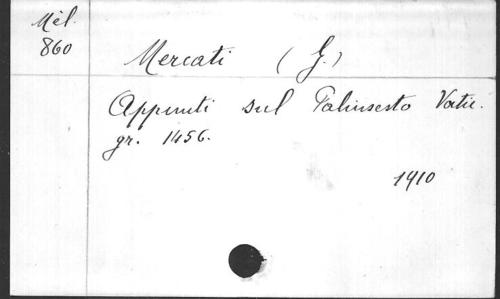 Mél.
860
Mercati (G.)
Appunti sul Palinsesto Vatic.
gr. 1456.
1910